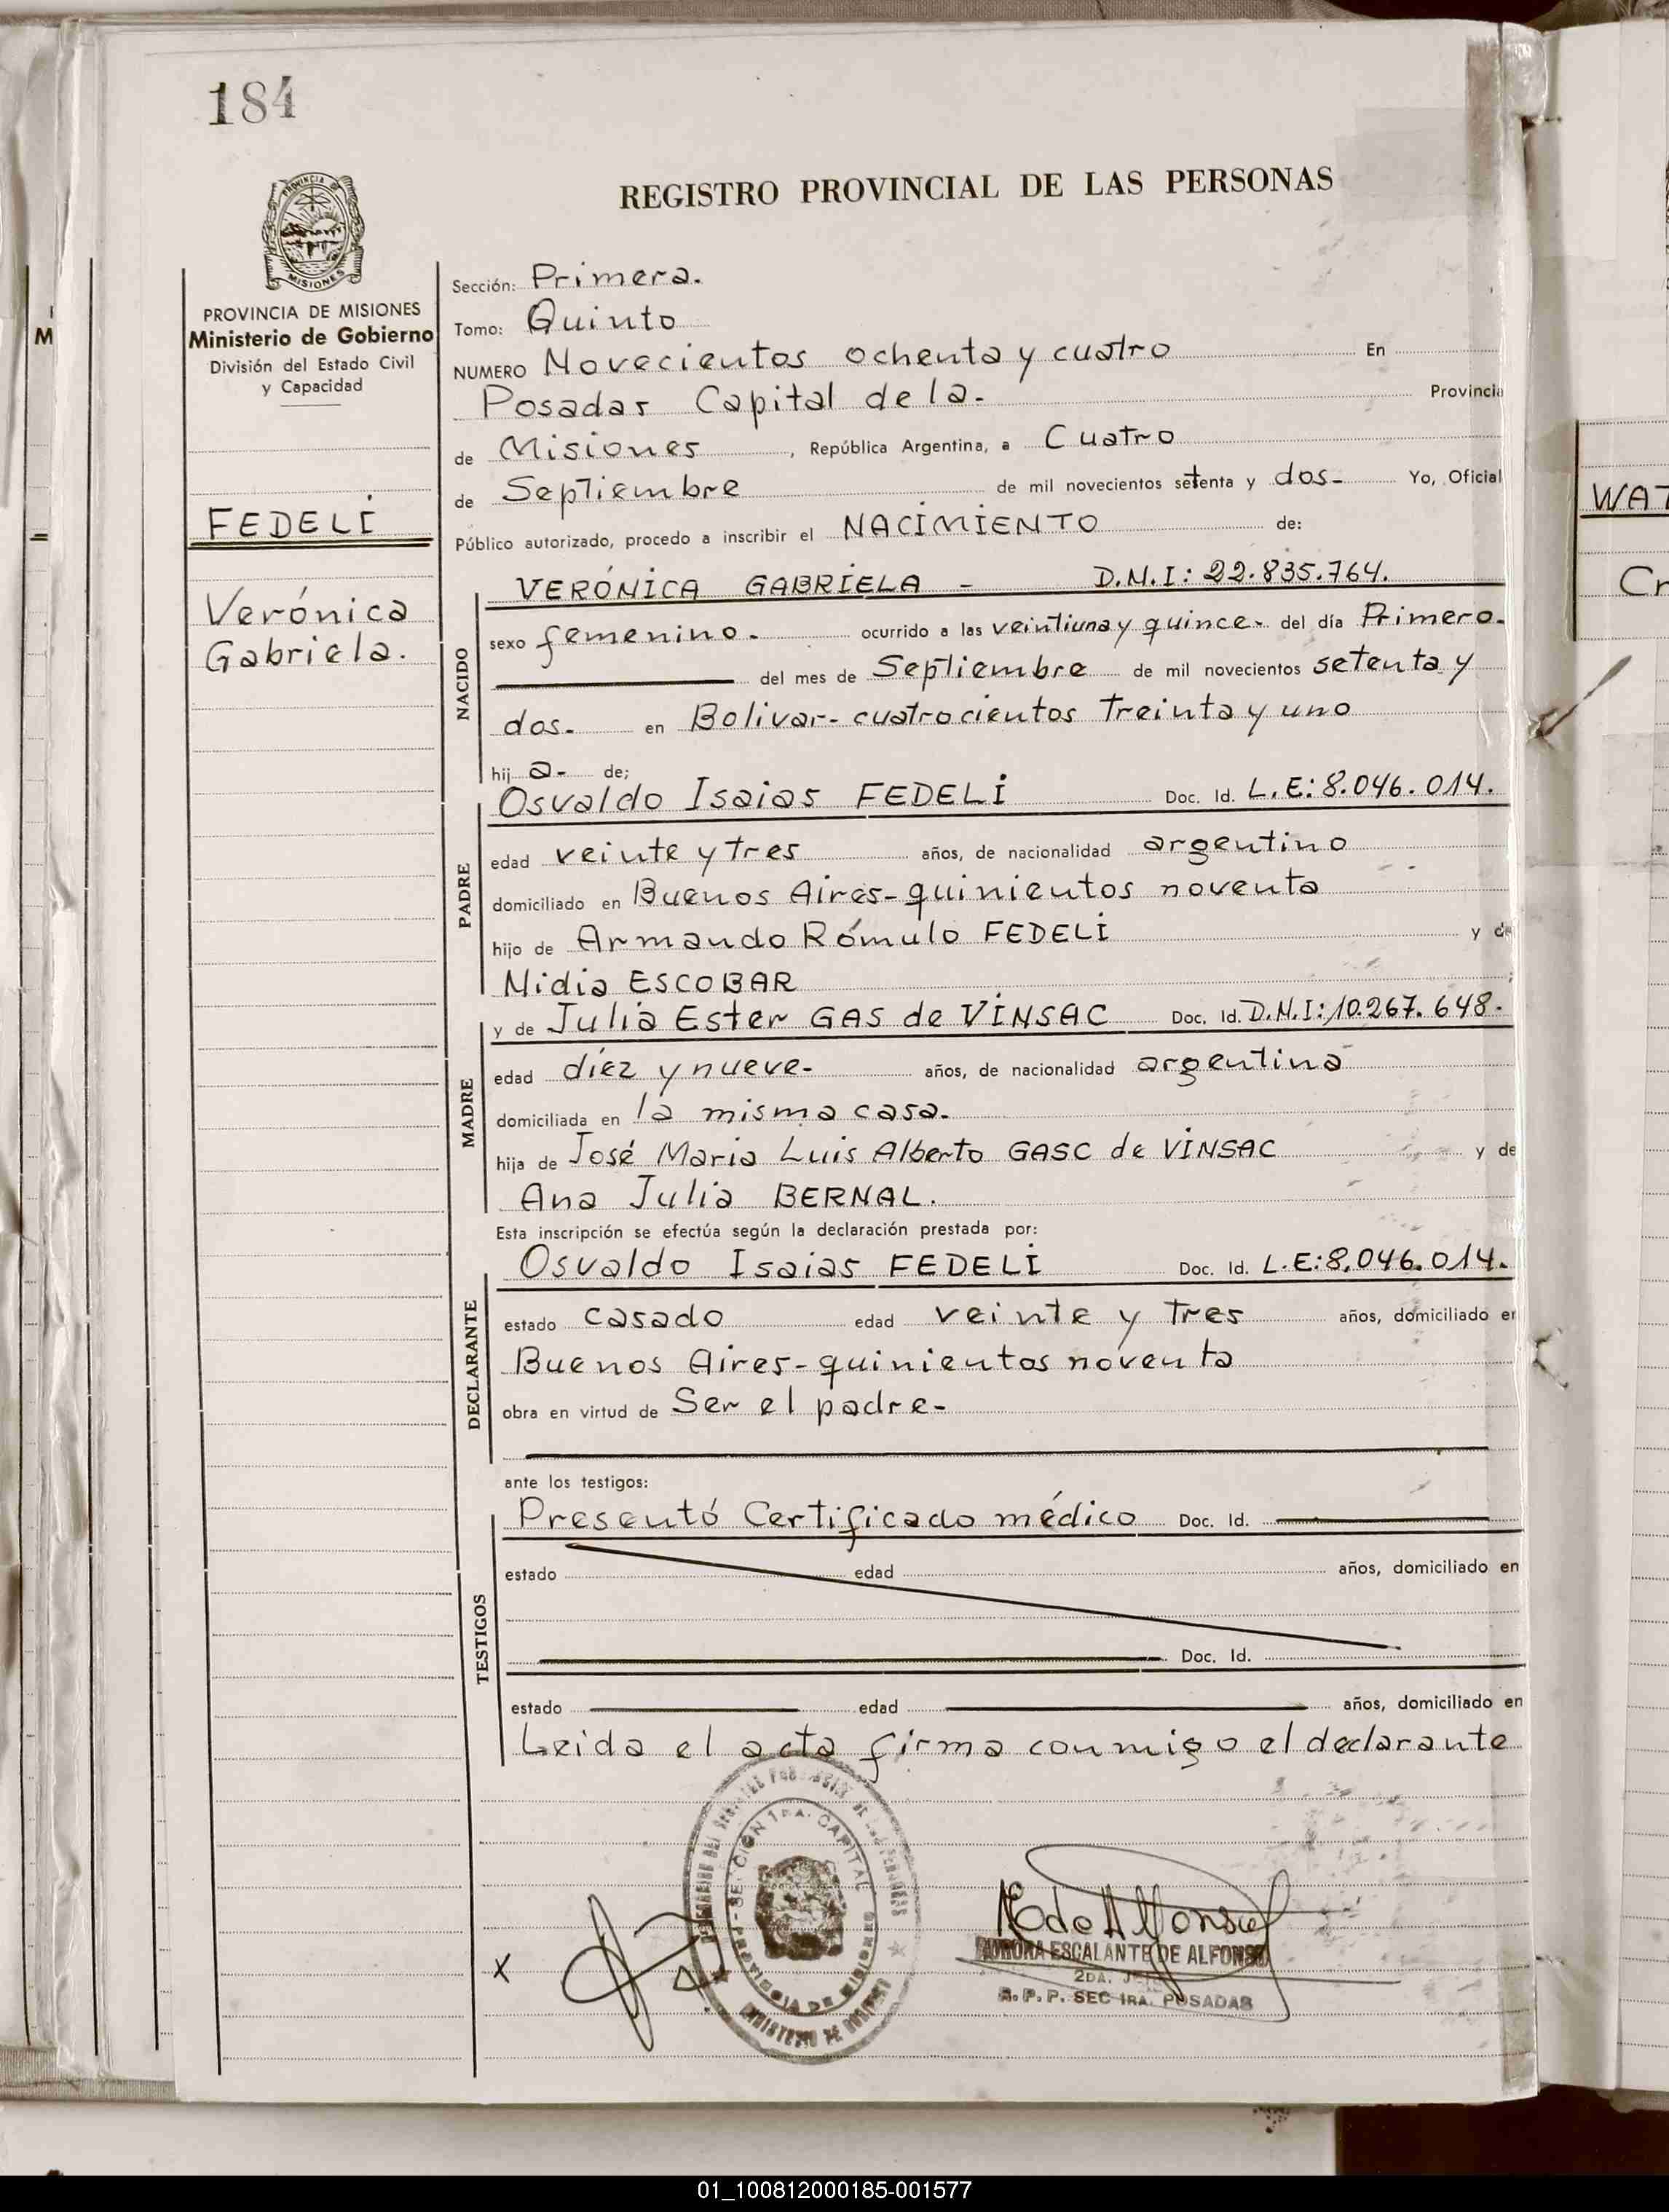 184
REGISTRO PROVINCIAL DE LAS PERSONAS
PROVINCIA
MISIONES
PROVINCIA DE MISIONES
Ministerio de Gobierno
División del Estado Civil
y Capacidad
FEDELI
Verónica
Gabriela.
Sección: Primera.
Tomo: Quinto
NUMERO Novecientos ochenta y cuatro En
Posadas Capital de la- Provincia
de Misiones , República Argentina, a Cuatro
de Septiembre de mil novecientos setenta y dos- Yo, Oficial
Público autorizado, procedo a inscribir el NACIMIENTO de:
NACIDO
VERÓNICA GABRIELA - D.N.I: 22.835.764.
sexo femenino. ocurrido a las veintiuna y quince- del día Primero-
del mes de Septiembre de mil novecientos setenta y
dos- en Bolivar- cuatrocientos treinta y uno
hij a- de;
PADRE
Osvaldo Isaias FEDELI Doc. Id. L.E: 8.046.014.
edad veinte y tres años, de nacionalidad argentino
domiciliado en Buenos Aires-quinientos noventa
hijo de Armando Rómulo FEDELI y de
Nidia ESCOBAR
MADRE
y de Julia Ester GAS de VINSAC Doc. Id. D.N.I: 10.267.648-
edad diez y nueve- años, de nacionalidad argentina
domiciliada en la misma casa.
hija de José Maria Luis Alberto GASC de VINSAC y de
Ana Julia BERNAL.
Esta inscripción se efectúa según la declaración prestada por:
DECLARANTE
Osvaldo Isaias FEDELI Doc. Id. L.E: 8.046.014.
estado casado edad veinte y tres años, domiciliado en
Buenos Aires-quinientos noventa
obra en virtud de Ser el padre-
ante los testigos:
TESTIGOS
Presentó Certificado médico Doc. Id.
estado edad años, domiciliado en
Doc. Id.
estado edad años, domiciliado en
Leida el acta firma conmigo el declarante
SECCION 1RA. CAPITAL
PROVINCIA DE MISIONES
MINISTERIO DE GOBIERNO
x
E de Alfonso
AURORA ESCALANTE DE ALFONSO
2DA.
R.P.P. SEC 1RA. POSADAS
M
WAT
Cr
01_100812000185-001577